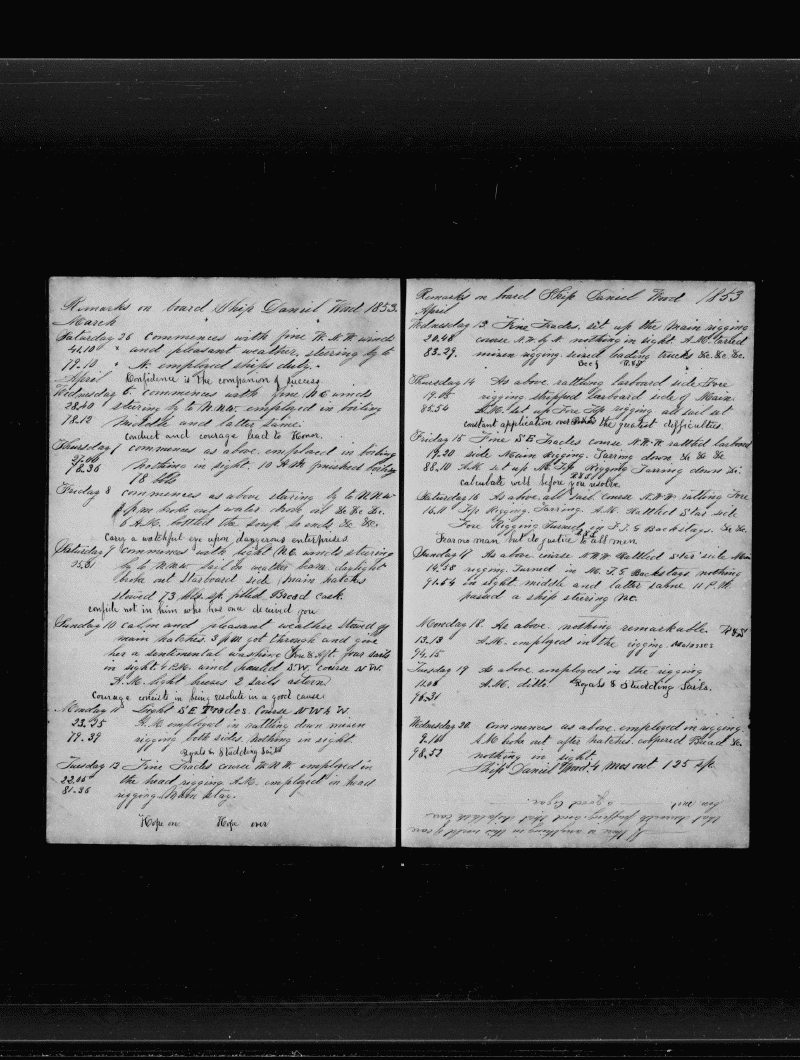 Remarks on board Ship Daniel Wood 1853.
March
Saturday 26 commences with fine winds
41.10 " and pleasant weather, steering by
79.10 " employed ships duty.
April Confidence is the companion of success
Wednesday 6. commences with fine NE winds
28.40 steering by to N.N.W. employed in boiling
78.12 Middle and latter same.
conduct and courage lead to Honor.
Thursday 7 commences as above. employed in boiling
78.36 nothing in sight. 10 P.M finished boiling
78 bbls
Friday 8 commences as above steering by to N.N.W
P.M. broke out water. &c &c &c.
6 A.M. bottled the soup so ends &c &c.
Carry a watchful eye upon dangerous enterprises.
Saturday 9 commences with light N.E. winds steering
25.31 by to N.N.W. sail on weather beam. daylight
broke out Starboard side main hatches
stowed 73 bbls. sp. Bread cask.
confide not in him who has once deceived you
Sunday 10 calm and pleasant weather stowed off
main hatches. 3 P.M. got through and give
her a sentimental washing Fore & Aft. four sails
in sight. 4 P.M. wind hauled S.W. course N.W.
A.M. light breses 2 sails astern
Courage consists in being resolute in a good cause
Monday 11 Light S E Trades. Course N W & W.
23.25 A.M. employed in rattling down mizen
79.39 rigging both sides. Nothing in sight.
Royals & Studding Sails
Tuesday 12 Fine Trades course W.N.W. employed in
22.05 the head rigging A.M. employed in head
81.36 rigging Main stay.
Hope on Hope ever
Remarks on board Ship Daniel Wood 1853
April
Wednesday 13 Fine Trades. sit up the main rigging
20.48 course nothing in sight. A.M. tarred
83.29. mizen rigging seized leading trucks &c. &c. &c.
Beef
Thursday 14 As above rattling larboard side Fore
19.05 rigging shipped larboard side of Main.
85.54 A.M. set up Fore Top rigging all sail set
constant application overcomes the greatest difficulties.
Friday 15 Fine S E Trades course N.W.W. rattled larboard
19.20 side Main Rigging. Tarring down &c &c &c
88.10 A.M. set up M. Top Rigging Tarring down &c.
calculate well before you resolve
Saturday 16 As above. all sail. course N.W.W. rattling Fore
16.11 Top Rigging. Tarring. A.M. Rattled Star side
Fore Rigging Turned in F.T.G Backstays. &c &c.
Fear no man but do justice to all men
Sunday 17 As above course N.W.W Rattled Star side Main
14.58 rigging. Turned in M. T G Backstays nothing
91.54 in sight. middle and latter same 11 P.M.
passed a ship steering
Monday 18. As above. nothing remarkable.
13.13 A.M. employed in the rigging Molasses
94.15
Tuesday 19 As above employed in the rigging
11.06 A.M. ditto. Royals & Studding Sails.
96.21
Wednesday 20. commences as above. employed in rigging
A.M. broke out after hatches. coopered Bread &c.
98.52 nothing in sight.
Ship Daniel Wood, 4 mos out 125 sp.
If there is anything in this world of care
that
you and
a good Cigar.